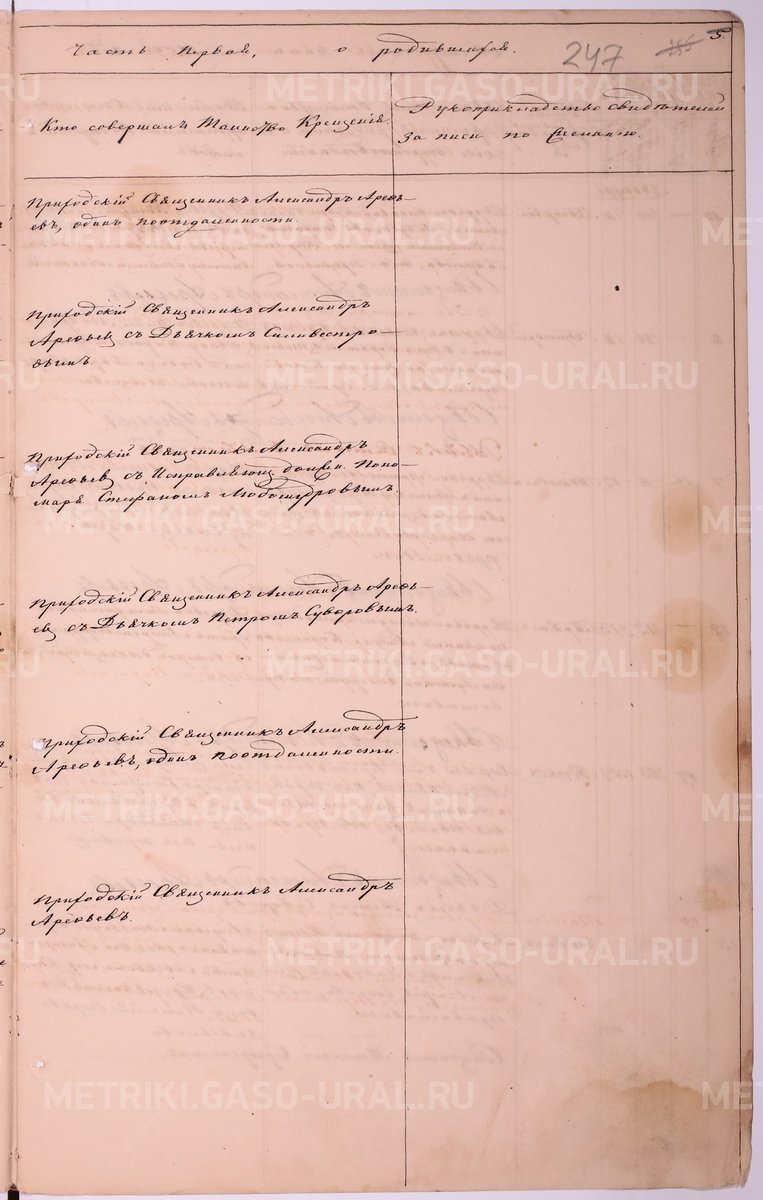 5.
Часть первая, о родившихся.
247
Кто совершалъ Таинство Крещенія.
Рукоприкладство свидѣтелей
записи по желанію.
Приходскій Священникъ Александръ Арефь-
евъ, одинъ поотдаленности.
Приходскій Священникъ Александръ
Арефьев съ Дьячкомъ Силивестро-
вымъ.
Приходскій Священникъ Александръ
Арефьев съ Исправляющ. долж. Поно-
маря Стефаномъ Любомудровымъ.
Приходскій Священникъ Александръ Арефь-
ев съ Дьячкомъ Петромъ Суворовымъ.
Приходскій Священникъ Александръ
Арефьевъ, одинъ поотдаленности.
Приходскій Священникъ Александръ
Арефьевъ.
METRIKI.GASO-URAL.RU